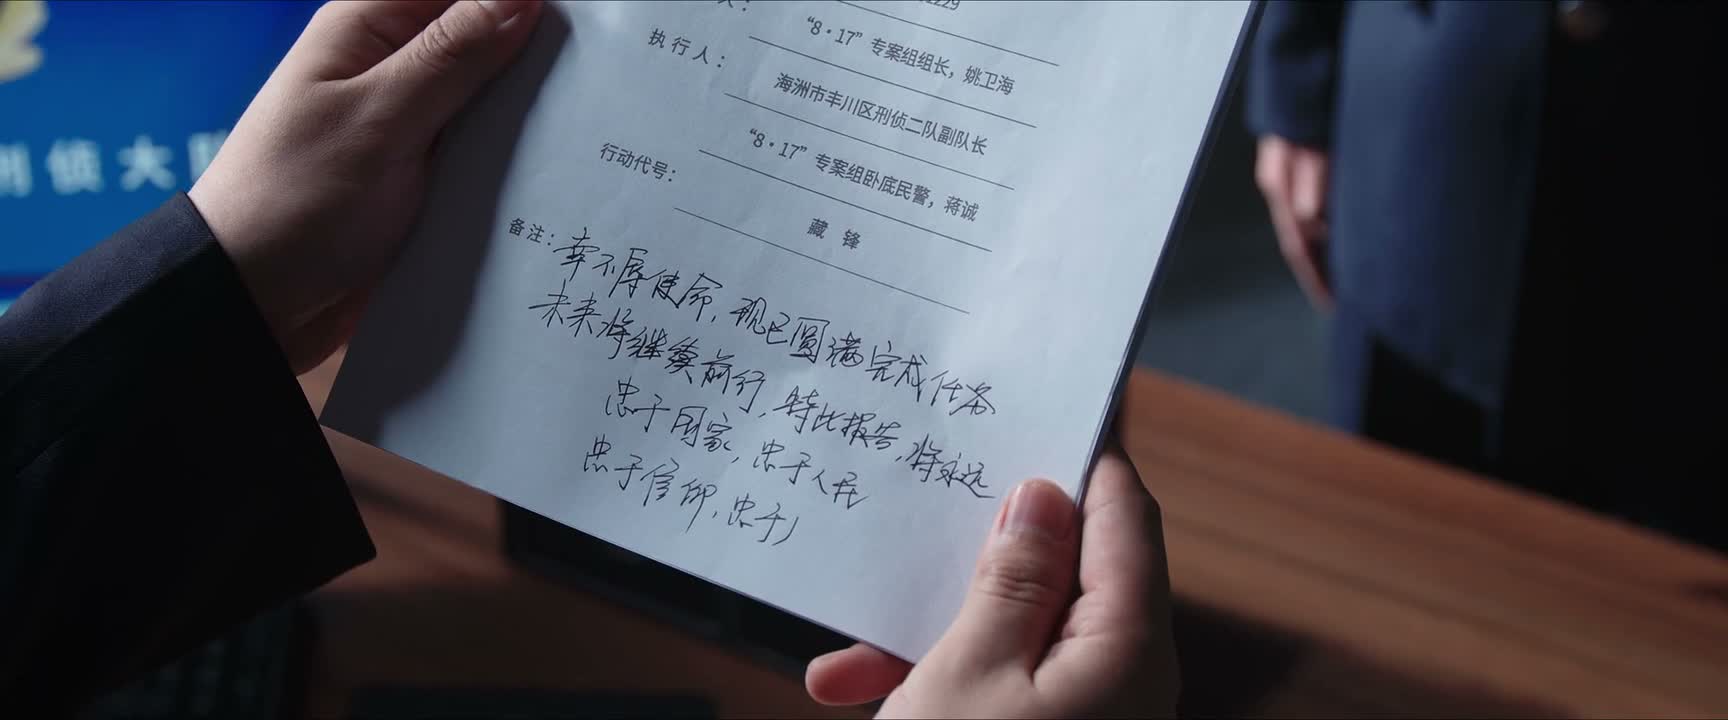 刑侦大队
人：
1229
“8·17”专案组组长，姚卫海
执行人：
海洲市丰川区刑侦二队副队长
“8·17”专案组卧底民警，蒋诚
行动代号：
藏 锋
备注：幸不辱使命，现已圆满完成任务
未来将继续前行，特此报告，将永远
忠于国家，忠于人民
忠于信仰，忠于